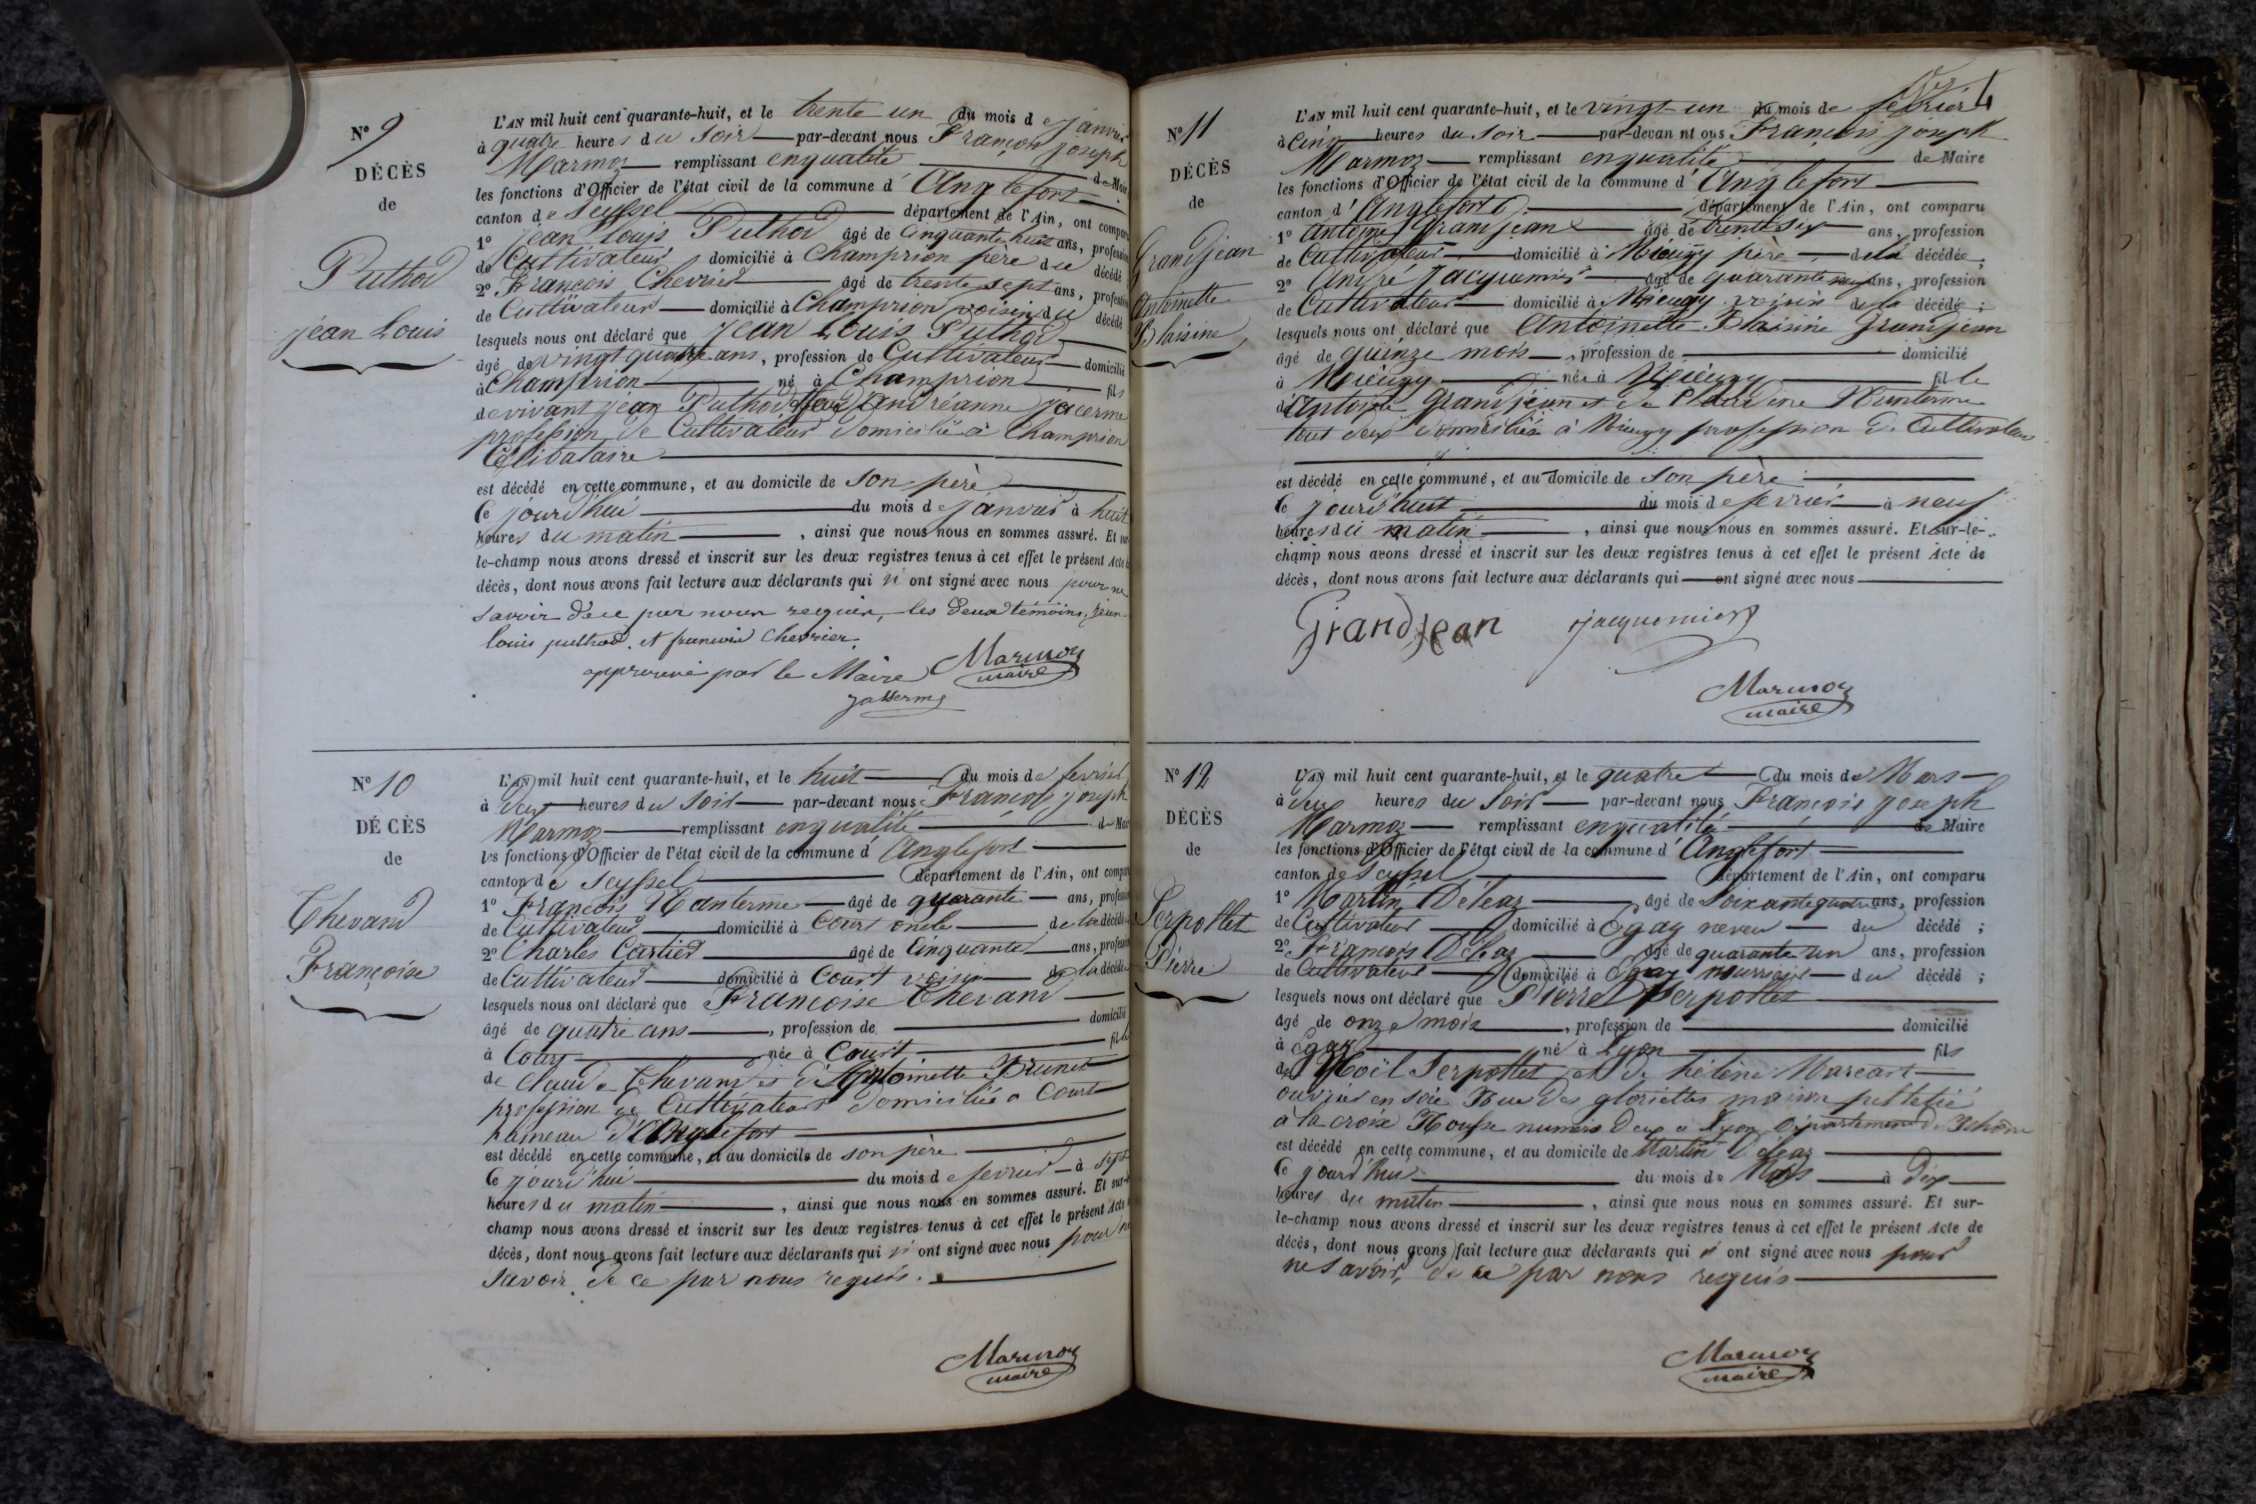 N° 9
DÉCÈS
de
Puthod
jean Louis
L'AN mil huit cent quarante-huit, et le trente un du mois de janvier
à quatre heures du soir par-devant nous François joseph
Marmoz remplissant enqualité de Maire
les fonctions d'Officier de l'état civil de la commune d'Anglefort
canton de Seyssel département de l'Ain, ont comparu
1° jean Louis Puthod âgé de cinquante huit ans, profession
de Cultivateur domicilié à Champrion père du décédé
2° François Chevrier âgé de trente sept ans, profession
de Cultivateur domicilié à Champrion voisin du décédé
lesquels nous ont déclaré que Jean Louis Puthod
âgé de vingt quatre ans, profession de Cultivateur domicilié
à Champrion né à Champrion fils
de vivant jean Puthod andréanne jacerme
profession de Cultivateur domicilié à Champrion
Célibataire
est décédé en cette commune, et au domicile de son père
Ce jourd'hui du mois de janvier à huit
heures du matin, ainsi que nous nous en sommes assuré. Et sur-
le-champ nous avons dressé et inscrit sur les deux registres tenus à cet effet le présent Acte de
décès, dont nous avons fait lecture aux déclarants qui n'ont signé avec nous pour ne
savoir de ce par nous requis, les deux témoins, jean
louis puthod. et francois Chevrier.
approuvé par le Maire Marmoz
maire
N° 10
DÉCÈS
de
Thevand
Françoise
L'AN mil huit cent quarante-huit, et le huit du mois de fevrier
à deux heures du soir par-devant nous François joseph
Marmoz remplissant enqualité de Maire
les fonctions d'Officier de l'état civil de la commune d'Anglefort
canton de Seyssel département de l'Ain, ont comparu
1° François Manterme âgé de quarante ans, profession
de Cultivateur domicilié à Court oncle de la décédée
2° Charles Cartier âgé de Cinquante ans, profession
de Cultivateur domicilié à Court voisin de la décédée
lesquels nous ont déclaré que Françoise Thevand
âgé de quatre ans, profession de domicilié
à Court née à Court fille
de claude Thevand et d'Antoinette Brunet
profession de Cultivateurs domiciliés a Court
hameau d'Anglefort
est décédé en cette commune, et au domicile de son père
Ce jourd'hui du mois de fevrier à sept
heures du matin, ainsi que nous nous en sommes assuré. Et sur-le-
champ nous avons dressé et inscrit sur les deux registres tenus à cet effet le présent Acte de
décès, dont nous avons fait lecture aux déclarants qui n'ont signé avec nous pour ne
savoir de ce par nous requis.
Marmoz
maire
N° 11
DÉCÈS
de
Grandjean
Antoinette
Blaisine
L'AN mil huit cent quarante-huit, et le vingt-un du mois de fevrier
à cinq heures du soir par-devan nt ous François joseph
Marmoz remplissant enqualité de Maire
les fonctions d'Officier de l'état civil de la commune d'Anglefort
canton d'Anglefort département de l'Ain, ont comparu
1° Antoine Grandjean âgé de trente six ans, profession
de Cultivateur domicilié à Mieugy père de la décédée;
2° André Jacquemier âgé de quarante neuf ans, profession
de Cultivateur domicilié à Mieugy voisin de la décédée;
lesquels nous ont déclaré que Antoinette Blaisine Grandjean
âgé de quinze mois, profession de domicilié
à Mieugy née à Mieugy fille
d'Antoine Grandjean et de Claudine Manterme
tout deux domiciliés à Mieugy profession de Cultivateur
est décédé en cette commune, et au domicile de son père
Ce jourd'huit du mois de fevrier à neuf
heures du matin, ainsi que nous nous en sommes assuré. Et sur-le-
champ nous avons dressé et inscrit sur les deux registres tenus à cet effet le présent Acte de
décès, dont nous avons fait lecture aux déclarants qui ont signé avec nous
Grandjean jacquemier
Marmoz
maire
N° 12
DÉCÈS
de
Serpollet
Pierre
L'AN mil huit cent quarante-huit, et le quatre du mois de Mars
à deux heures du soir par-devant nous François joseph
Marmoz remplissant enqualité de Maire
les fonctions d'Officier de l'état civil de la commune d'Anglefort
canton de Seyssel département de l'Ain, ont comparu
1° Martin Déléaz âgé de soixante quatre ans, profession
de Cultivateur domicilié à neveu du décédé;
2° François Déléaz âgé de quarante un ans, profession
de Cultivateur domicilié à nourricier du décédé;
lesquels nous ont déclaré que Pierre Serpollet
âgé de onze mois, profession de domicilié
à né à Lyon fils
de Noël Serpollet et de hélène Marcant
ouvrier en soie Rue des gloriettes maison
à la croix Rousse numéro deux a Lyon Département du Rhône
est décédé en cette commune, et au domicile de Martin Déléaz
Ce jourd'hui du mois de Mars à dix
heures du matin, ainsi que nous nous en sommes assuré. Et sur-
le-champ nous avons dressé et inscrit sur les deux registres tenus à cet effet le présent Acte de
décès, dont nous avons fait lecture aux déclarants qui n'ont signé avec nous pour
ne savoir, de ce par nous requis
Marmoz
maire